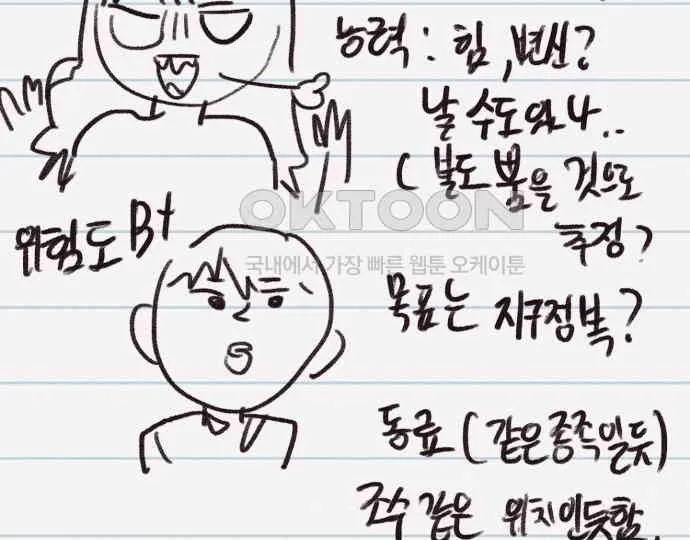 능력 : 힘, 변신?
날 수도 있나..
( 불도 뿜을 것으로
추정?
위험도 B+
OKTOON
국내에서 가장 빠른 웹툰 오케이툰
목표는 지구정복?
동료 (같은종족일듯)
조수 같은 위치인듯함.